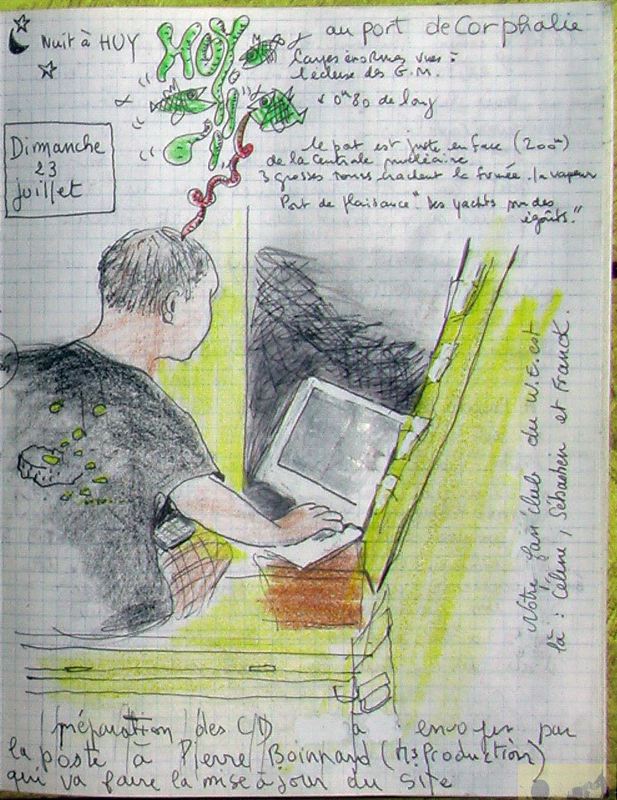 Nuit à HUY
HUY
au port de Corphalie
Carpes énormes vues à
l'écluse des G.M.
0m80 de long
Dimanche
23
juillet
le port est juste en face (200m)
de la Centrale nucléaire
3 grosses tours crachent la fumée. la vapeur
Port de plaisance "Des yachts
égouts."
Notre fan club du W.E. est
là : Céline, Sébastien et Franck.
préparation des CD à envoyer par
la poste à Pierre Boinnard
qui va faire la mise à jour du Site